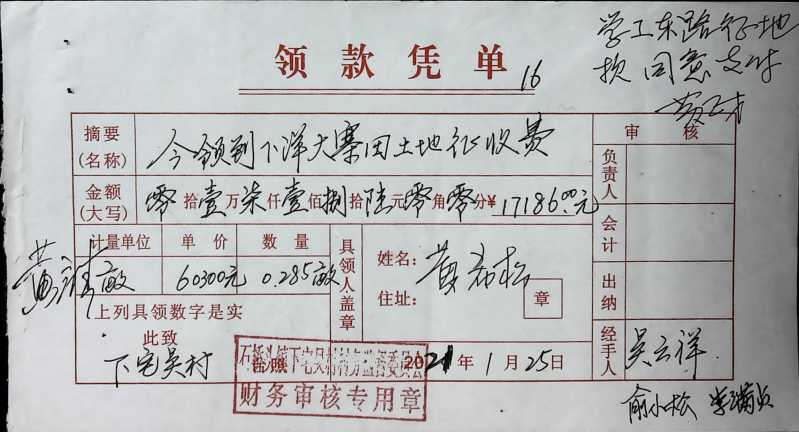 学工东路征地
款 同意支付
领款凭单
16
摘要
(名称)
今领到下洋大寨田土地征收费
审 核
金额
(大写)
零拾壹万柒仟壹佰捌拾陆元零角零分¥ 17186.00元
负责人
计量单位 单价 数量
亩 60300元 0.285亩
具领人盖章
姓名:
住址:
章
会计
上列具领数字是实
此致
下宅吴村
出纳
2021年1月25日
财务审核专用章
经手人
吴云祥
俞小松